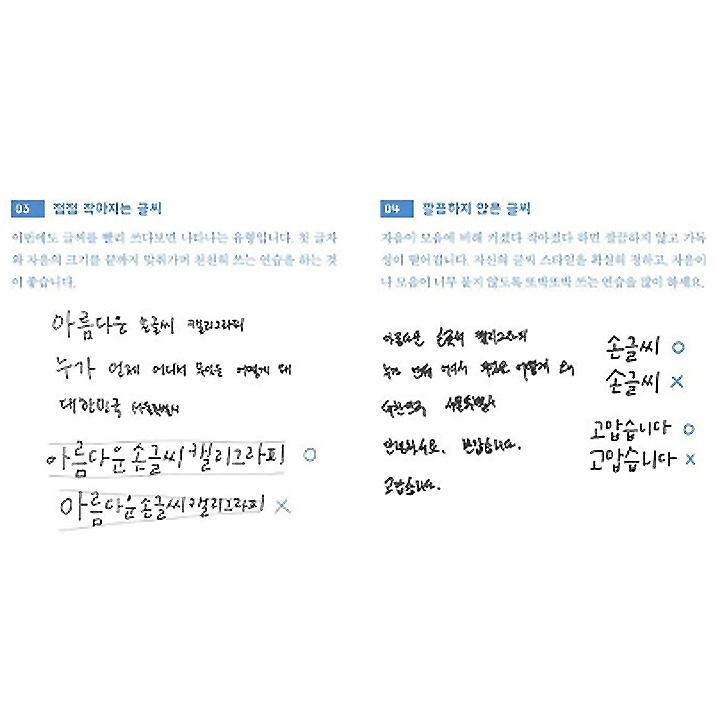 03 점점 작아지는 글씨
이번에도 글씨를 빨리 쓰다보면 나타나는 유형입니다. 첫 글자
와 자음의 크기를 끝까지 맞춰가며 천천히 쓰는 연습을 하는 것
이 좋습니다.
아름다운 손글씨 캘리그라피
누가 언제 어디서 무엇을 어떻게 왜
대한민국 서울특별시
아름다운손글씨캘리그라피 O
아름다운손글씨캘리그라피 X
04 깔끔하지 않은 글씨
자음이 모음에 비해 커졌다 작아졌다 하면 깔끔하지 않고 가독
성이 떨어집니다. 자신의 글씨 스타일을 확실히 정하고, 자음이
나 모음이 너무 붙지 않도록 또박또박 쓰는 연습을 많이 하세요.
아름다운 손글씨 캘리그라피
누가 언제 어디서 무엇을 어떻게 왜
대한민국 서울특별시
안녕하세요. 반갑습니다.
고맙습니다.
손글씨 O
손글씨 X
고맙습니다 O
고맙습니다 X